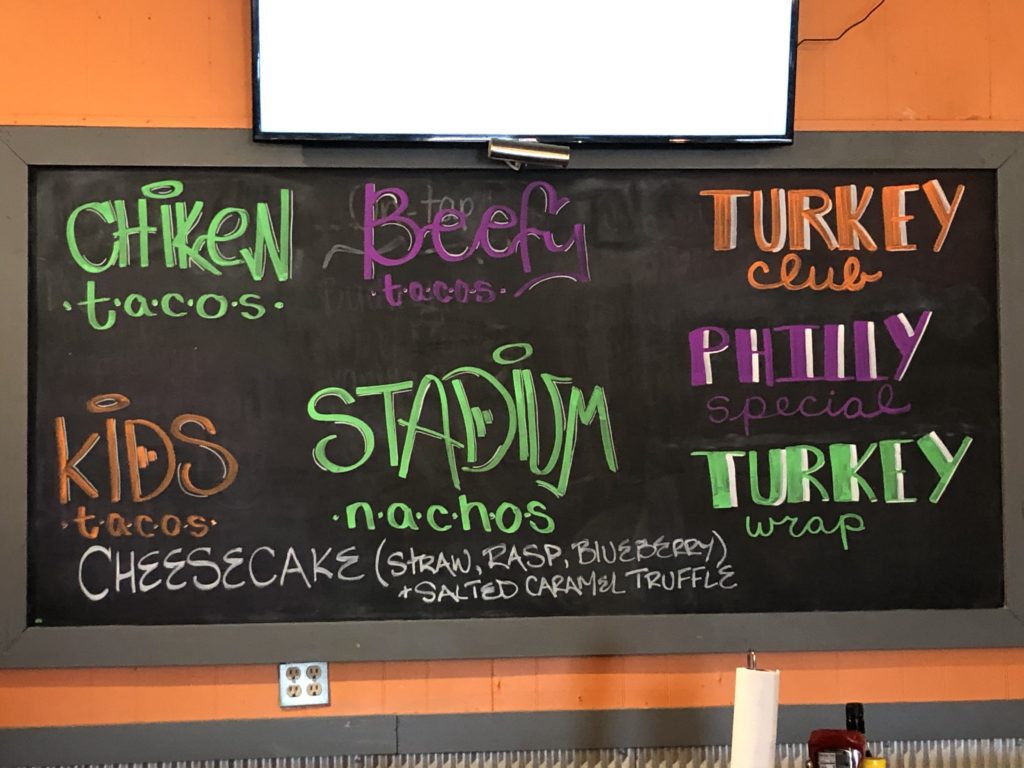 CHIKEN
tacos
Beefy
tacos
TURKEY
club
PHILLY
special
KIDS
tacos
STADIUM
nachos
TURKEY
wrap
CHEESECAKE (STRAW, RASP, BLUEBERRY)
+ SALTED CARAMEL TRUFFLE